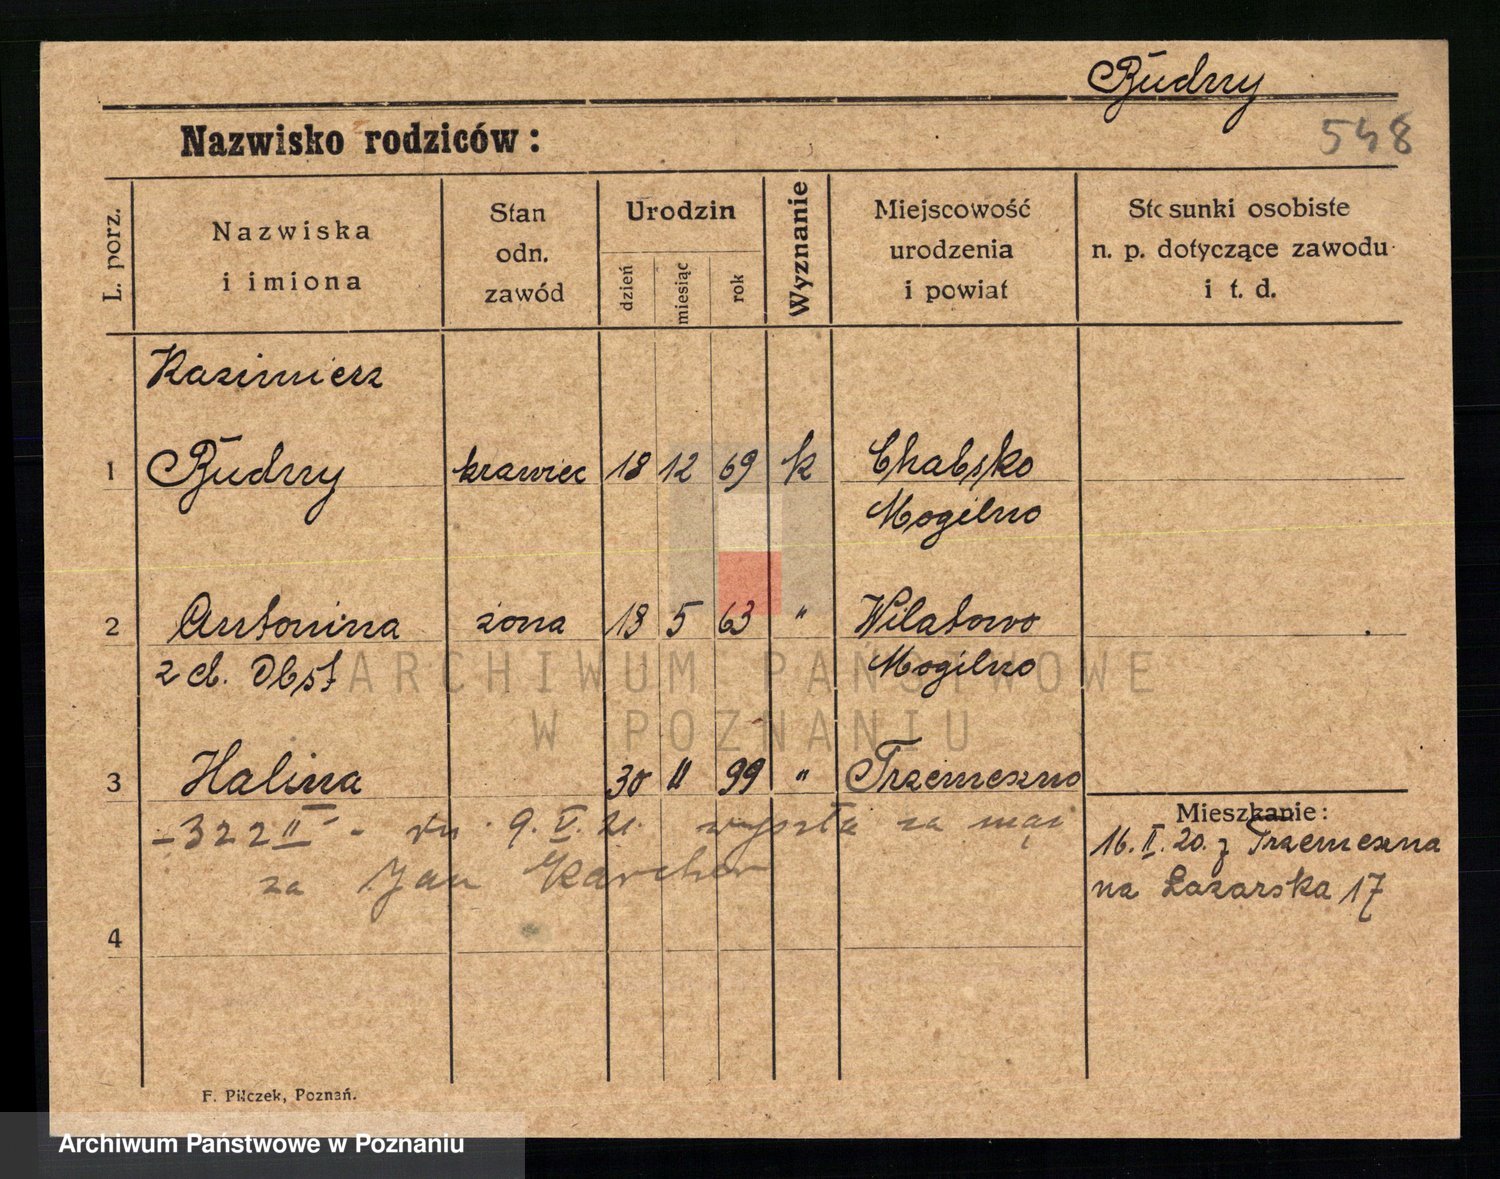 Budny
548
Nazwisko rodziców:
L. porz.
Nazwiska
i imiona
Stan
odn.
zawód
Urodzin
dzień
miesiąc
rok
Wyznanie
Miejscowość
urodzenia
i powiat
Stosunki osobiste
n. p. dotyczące zawodu
i t. d.
Kazimierz
1 Budny krawiec 18 12 69 k Chabsko
Mogilno
2 Antonina żona 13 5 63 " Wilatowo
z d. Obst Mogilno
3 Halina 30 11 99 " Trzemeszno
-322 II - dn. 9. V. 21. wyszła za mąż
za Jan Karcher
Mieszkanie:
16. II. 20. z Trzemeszna
na Łazarska 17
4
F. Pilczek, Poznań.
ARCHIWUM PAŃSTWOWE
W POZNANIU
Archiwum Państwowe w Poznaniu